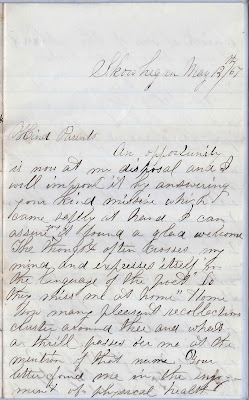 Skowhegan May 12th /67
Kind Parents
An opportunity
is now at my disposal and I
will improve it by answering
your kind missive which
came safely at hand I can
assure it found a glad welcome
The thought often crosses my
mind and expresses itself in
the language of the poet Do
they miss me at home Home
how many pleasant recollections
cluster around thee and what
a thrill passes over me at the
mention of that name Your
letter found me in the enjoy
ment of physical health